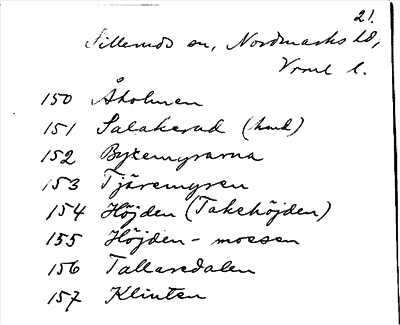 21.
Silleruds sn, Nordmarks hd,
Vrml l.
150 Åholmen
151 Salakerud (hmd)
152 Bytemyrarna
153 Tjäremyren
154 Höjden (Takehöjden)
155 Höjden - mossen
156 Tallaredalen
157 Klinten